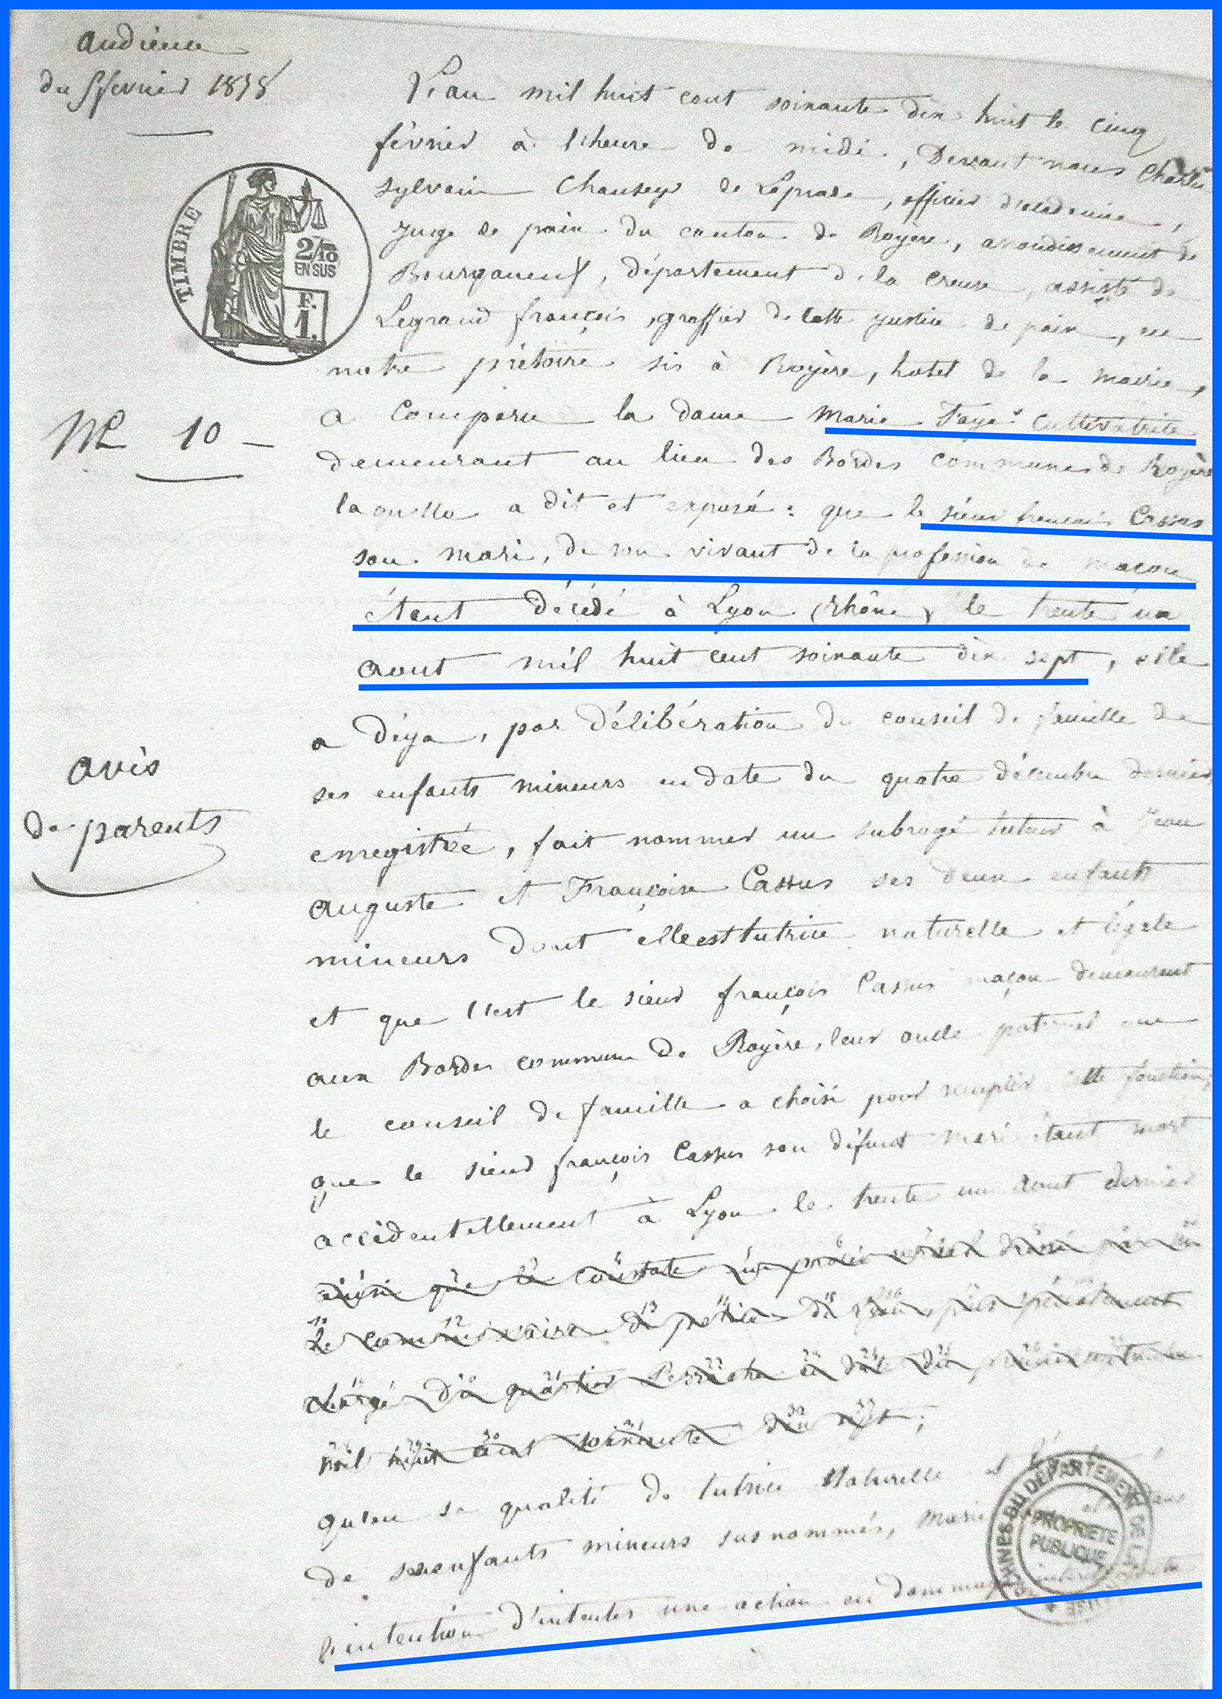 Audience
du 5 février 1878
L'an mil huit cent soixante dix huit le cinq
février à l'heure de midi, Devant nous Charles
Sylvain Chansey de Leprade, officier d'académie,
Juge de paix du canton de Royère, arrondissement de
Bourganeuf, département de la Creuse, assisté de
Legrand françois, greffier de cette justice de paix, en
notre prétoire sis à Royère, hotel de la mairie,
TIMBRE
2/10
EN SUS
F.
1.
N° 10
a comparu la dame Marie Faye cultivatrice
demeurant au lieu des Bordes commune de Royère
laquelle a dit et exposé : que le sieur françois Cassus
son mari, de son vivant de la profession de maçon
étant décédé à Lyon (Rhône) le trente un
aout mil huit cent soixante dix sept, elle
avis
de parents
a déja, par délibération du conseil de famille de
ses enfants mineurs en date du quatre décembre dernier
enregistrée, fait nommer un subrogé tuteur à Jean
auguste et Françoise Cassus ses deux enfants
mineurs dont elle est tutrice naturelle et légale
et que c'est le sieur françois Cassus maçon demeurant
aux Bordes commune de Royère, leur oncle paternel que
le conseil de famille a choisi pour remplir cette fonction;
que le sieur françois Cassus son défunt mari étant mort
accidentellement à Lyon le trente un aout dernier
ainsi que le constate un procès verbal dressé par
le commissaire de police de plus spécialement
chargé du quartier Perrache en date du
mil huit cent soixante dix sept;
qu'en sa qualité de tutrice naturelle et
de ses enfants mineurs susnommés, Marie
l'intention d'intenter une action en dommages intérêts
DU DÉPARTEMENT DE LA CREUSE
PROPRIÉTÉ
PUBLIQUE